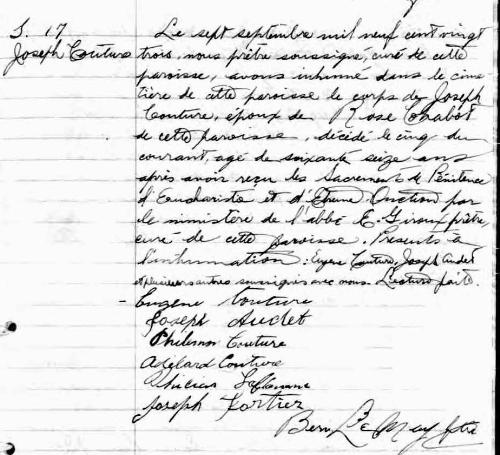 S. 17
Joseph Couture
Le sept septembre mil neuf cent vingt
trois, nous prêtre soussigné, curé de cette
paroisse, avons inhumé dans le cime
tière de cette paroisse le corps de Joseph
Couture, époux de Rose Chabot
de cette paroisse, décédé le cinq du
courant, agé de soixante seize ans
après avoir reçu les Sacrements de Pénitence
d'Eucharistie et d'Extreme Onction par
le ministère de l'abbé E. Giroux prêtre
curé de cette paroisse. Présents à
l'inhumation : Eugène Couture, Joseph Audet
et plusieurs autres soussignés avec nous. Lecture faite.
Eugene Couture
Joseph Audet
Philemon Couture
Adelard Couture
Laflamme
Joseph Fortier
Bern LeMay ptre